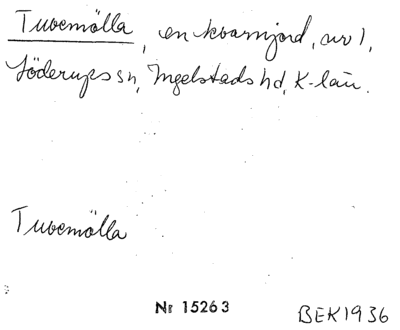 Tuvemölla, en kvarnjord, nr 1,
Söderups sn, Ingelstads hd, K-län.
Tuvemölla
Nr 15263
BEK1936